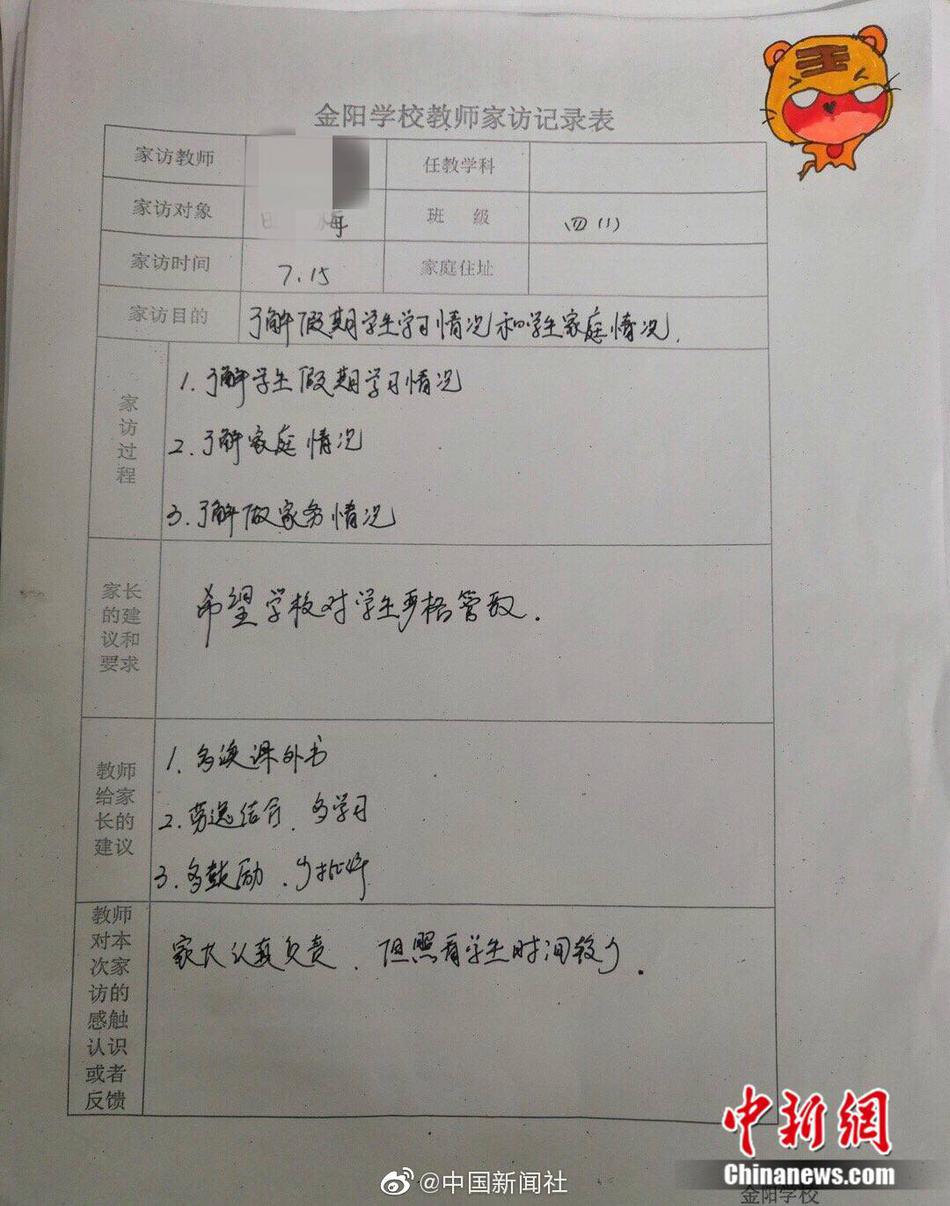 王
金阳学校教师家访记录表
家访教师 任教学科
家访对象 梅 班 级 四(1)
家访时间 7.15 家庭住址
家访目的 了解假期学生学习情况和学生家庭情况.
家访过程
1.了解学生假期学习情况
2.了解家庭情况
3.了解做家务情况
家长
的建
议和
要求
希望学校对学生严格管教.
教师
给家
长的
建议
1.多读课外书
2.劳逸结合.多学习
3.多鼓励.少批评
教师
对本
次家
访的
感触
认识
或者
反馈
家长认真负责.但照看学生时间较少.
中新网
Chinanews.com
@中国新闻社
金阳学校